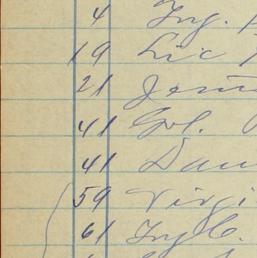 4 Ing.
19 Lic
21
41 Gol.
41 Dan
59 Virgi
61 Ing C.